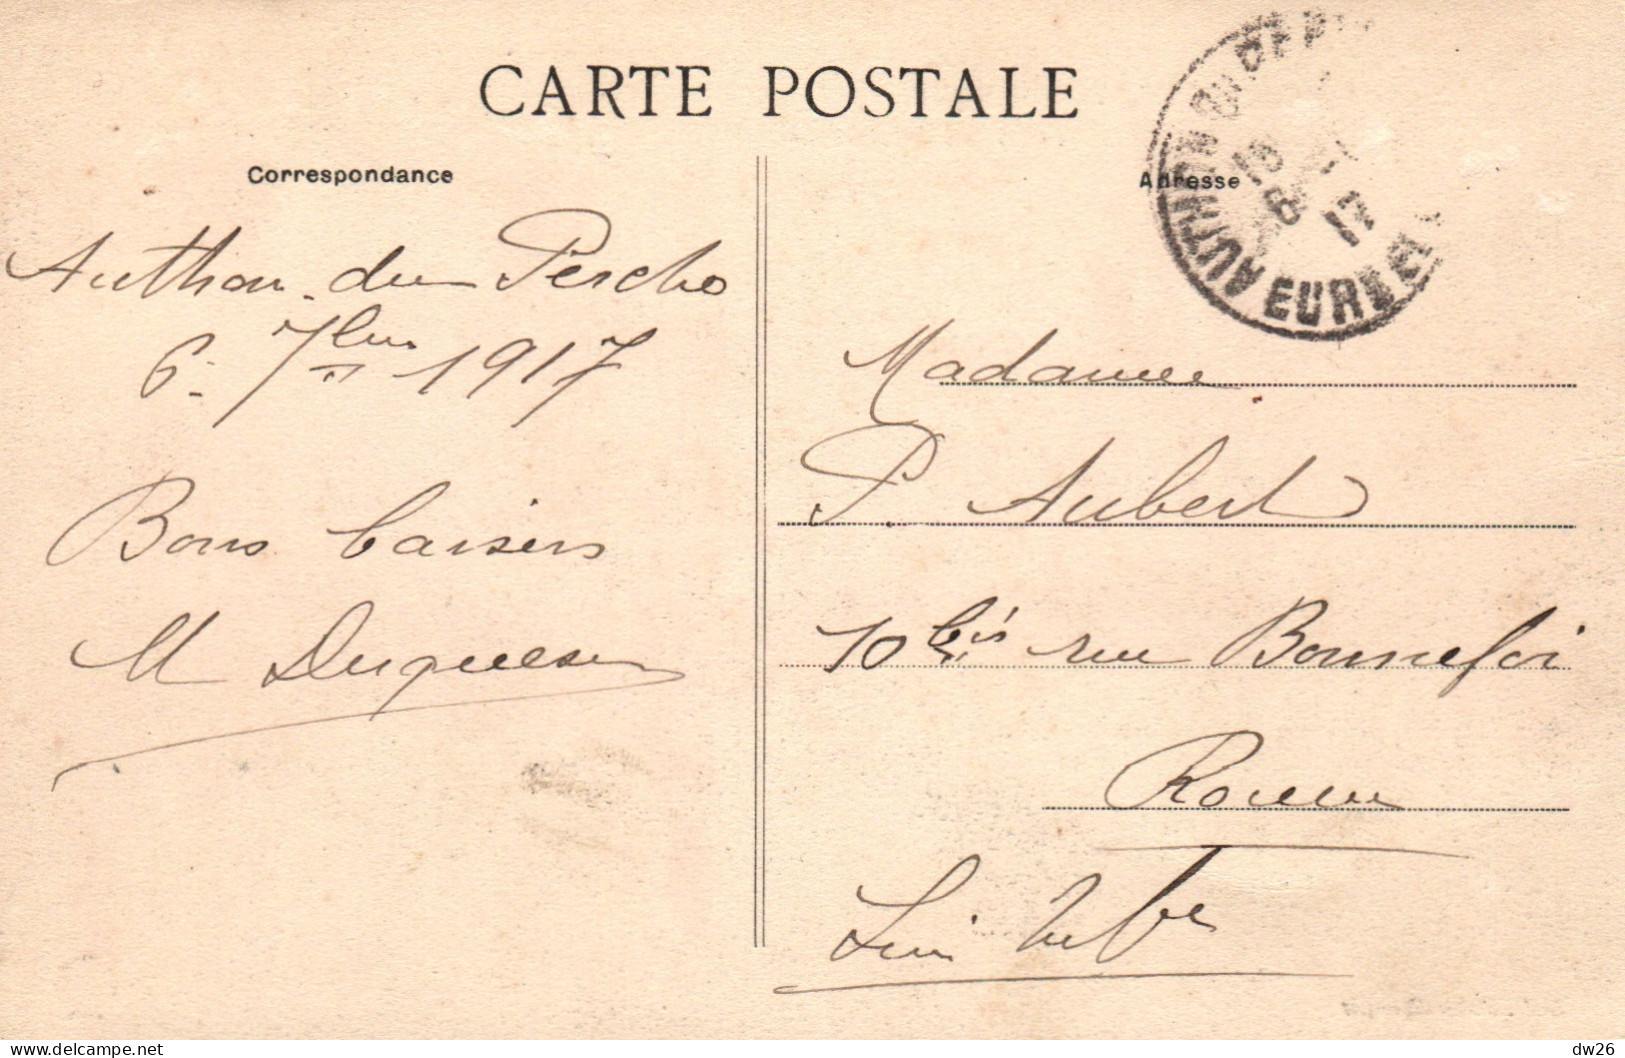 CARTE POSTALE
Correspondance
Authon-du Perche
6. 7bre 1917
Bons baisers
M Duquesne
Adresse
AUTHON DU PERCHE
18
6 - 17
EURE
Madame
P. Aubert
10 bis rue Bonnefoi
Rouen
Sein Infre
delcampe.net
dw26